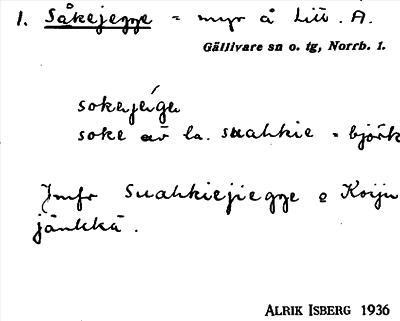 1. Såkejegge = myr å Litt. A.
Gällivare sn o. tg, Norrb. 1.
sokejeíga
soke av la. suahkie = björk
Jmfr Suahkiejiegge o Koiju
jänkkä.
ALRIK ISBERG 1936